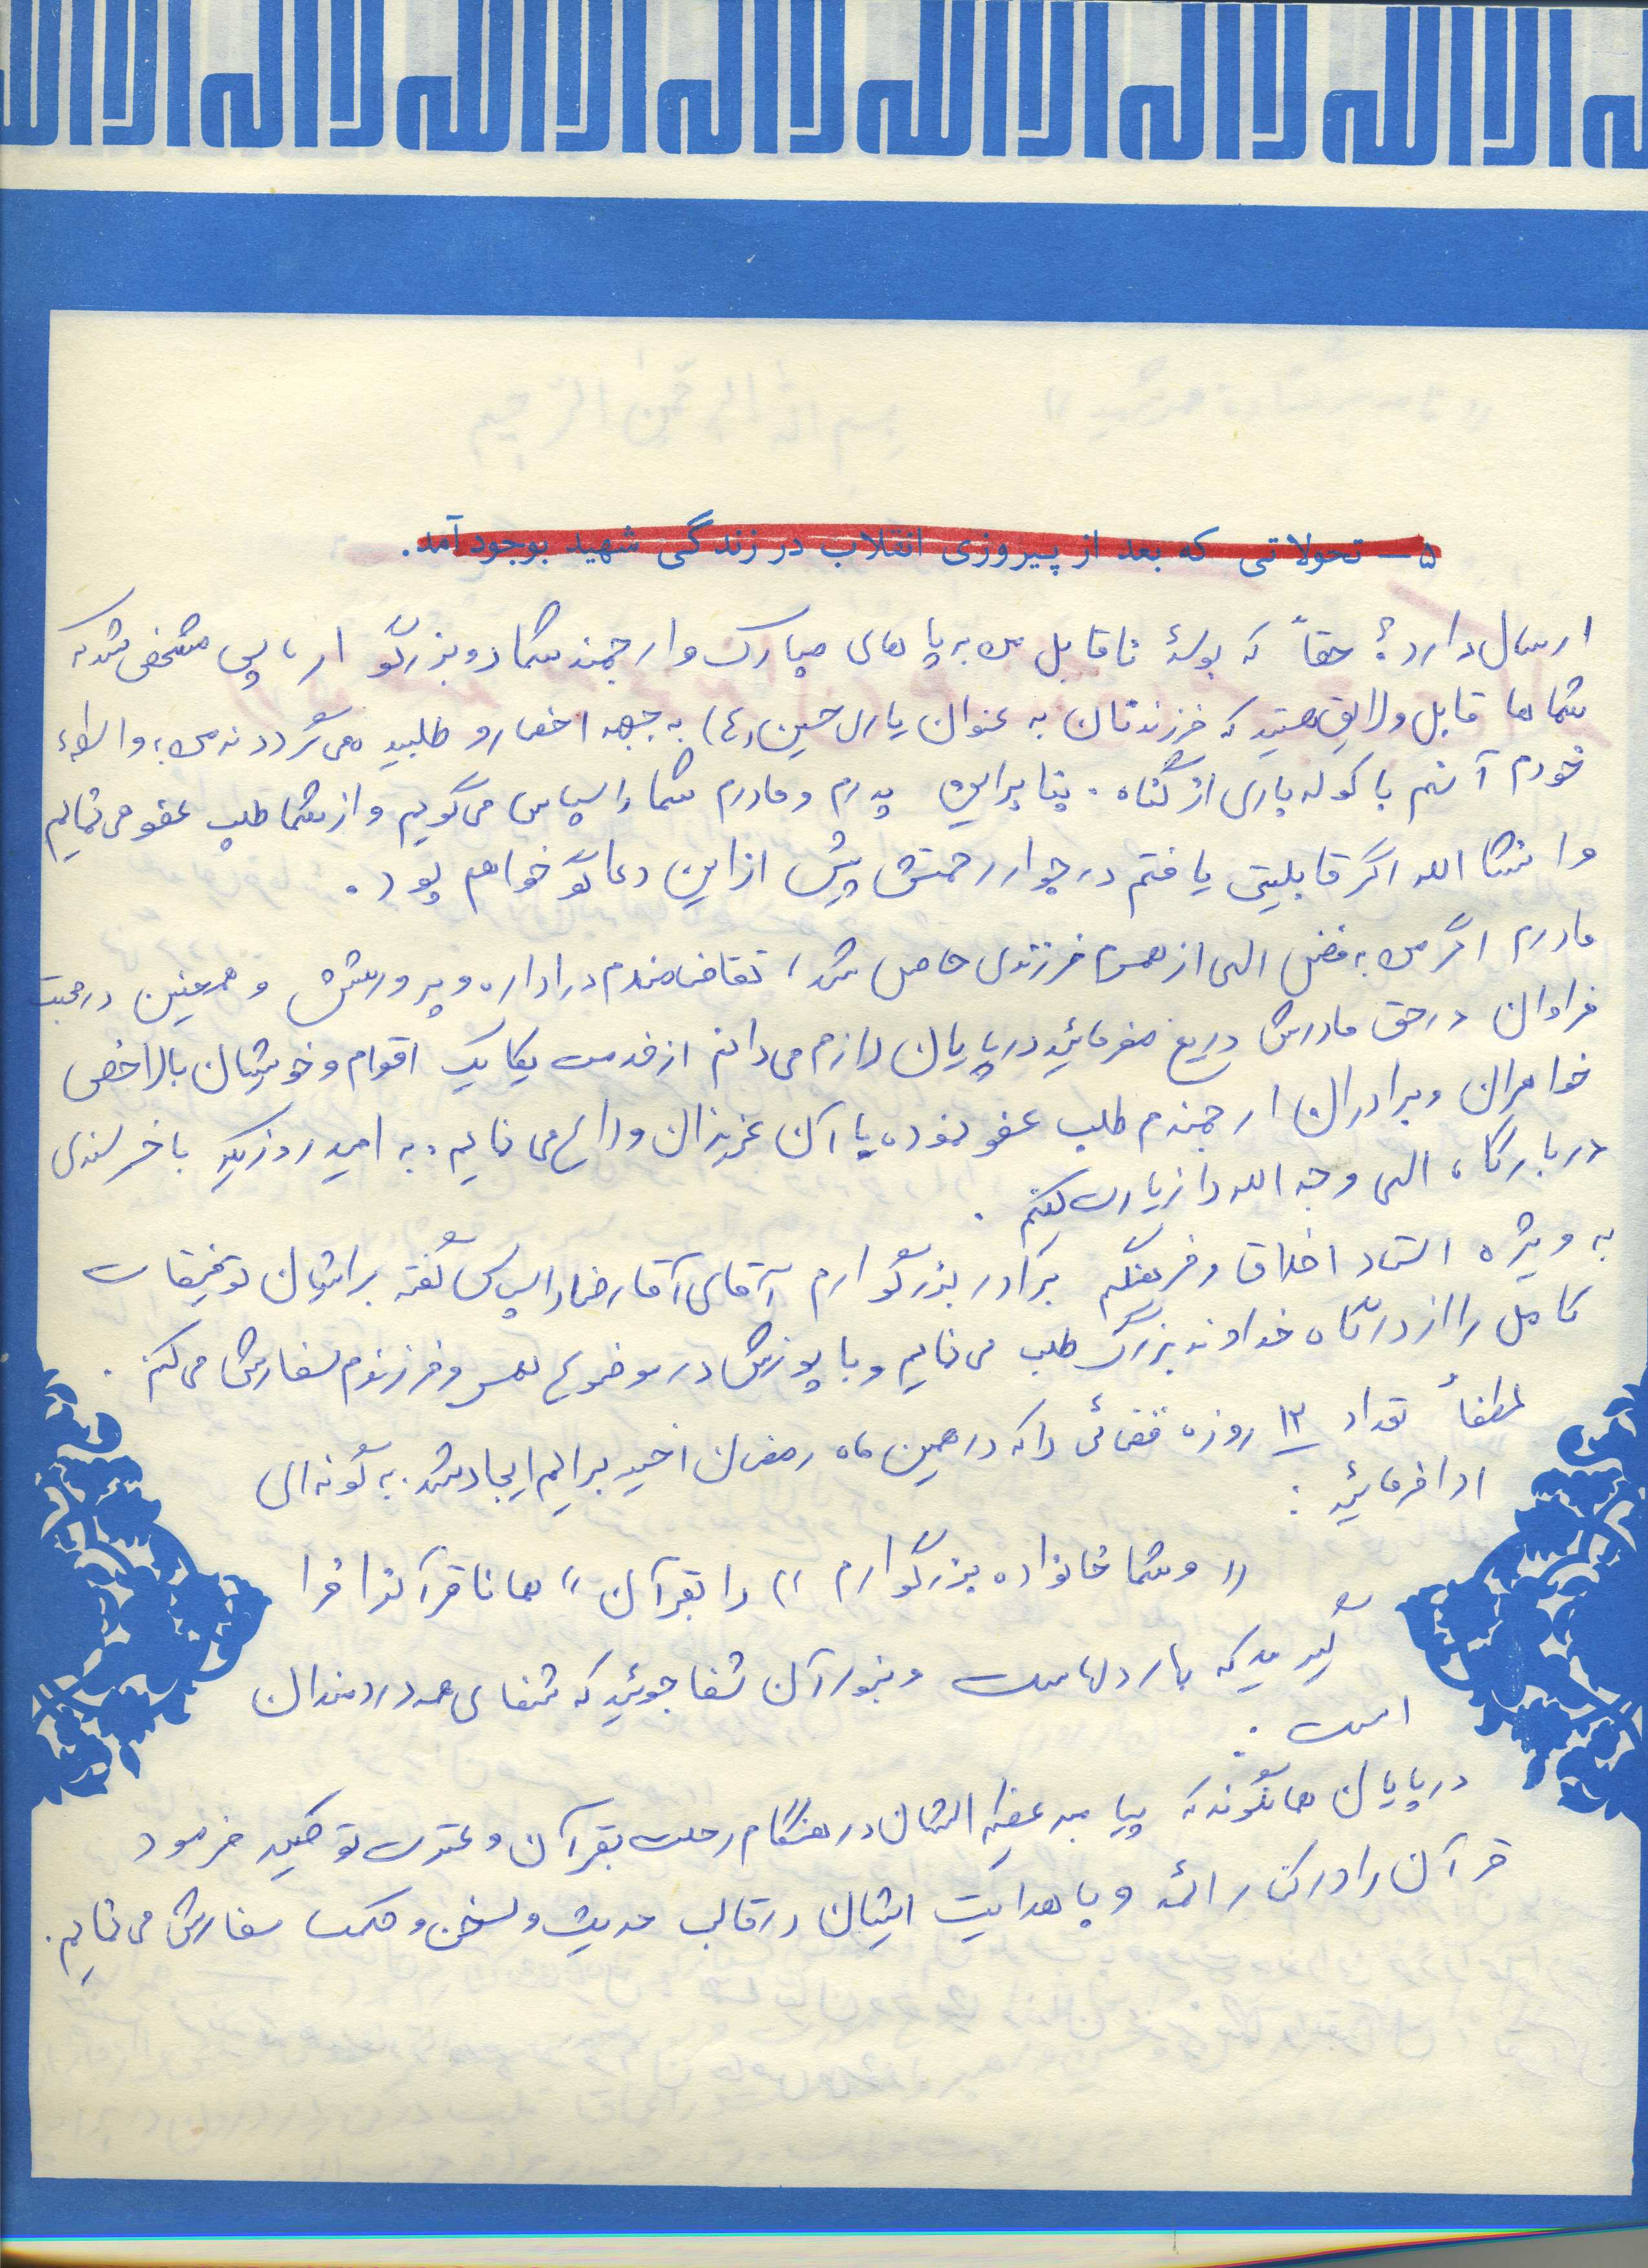 لا اله الا الله لا اله الا الله لا اله الا الله لا اله الا الله
۵ – تحولاتی که بعد از پیروزی انقلاب در زندگی شهید بوجود آمد.
ارسال دارد؛ حقاً که بوسهٔ ناقابل من به پاهای مبارک و ارجمند شما دو بزرگوار، پس مشخص شد که
شماها قابل و لایق هستید که فرزندتان به عنوان یاری حسین (ع) به جبهه احضار و طلبیده می‌گردد نه من؛ واسطهٔ
خودم آنهم با کوله باری از گناه. بنابراین پدرم و مادرم شما را سپاس می‌گویم و از شما طلب عفو می‌نمایم
و انشاالله اگر قابلیتی یافتم در جوار رحمتش بیش از این دعاگو خواهم بود.
مادرم اگر من به فضل الهی از همسرم فرزندی حاصل شد، تقاضامندم در اداره و پرورشش و همچنین در محبت
فراوان در حق مادرش دریغ نفرمائید در پایان لازم می‌دانم از خدمت یکایک اقوام و خویشان بالاخص
خواهران و برادران ارجمندم طلب عفو نموده با آن عزیزان وداع می‌نمایم. به امید روزیکه با خرسندی
در بارگاه الهی وجه الله را زیارت کنیم.
به ویژه استاد اخلاق و فرهنگم برادر بزرگوارم آقای آقارضا را سپاس گفته برایشان توفیقات
کامل را از درگاه خداوند بزرگ طلب می‌نمایم و با پوزش در موضوع همسر و فرزندم سفارش می‌کنم.
لطفاً تعداد ۱۳ روزه قضائی را که در همین ماه رمضان اخیر برایم ایجاد شد. به گونه‌ای
ادا فرمائید:
« و شما خانواده بزرگوارم » را بقرآن « همانا قرآن را فرا
گیرید که بهار دلهاست و بنور آن شفا جوئید که شفای همه دردمندان
است.
در پایان همانگونه که پیامبر عظیم الشان در هنگام رحلت بقرآن و عترت توصیه فرمود
قرآن را در کنار ائمه و با هدایت ایشان در قالب حدیث و سخن و حکمت سفارش می‌نمایم.